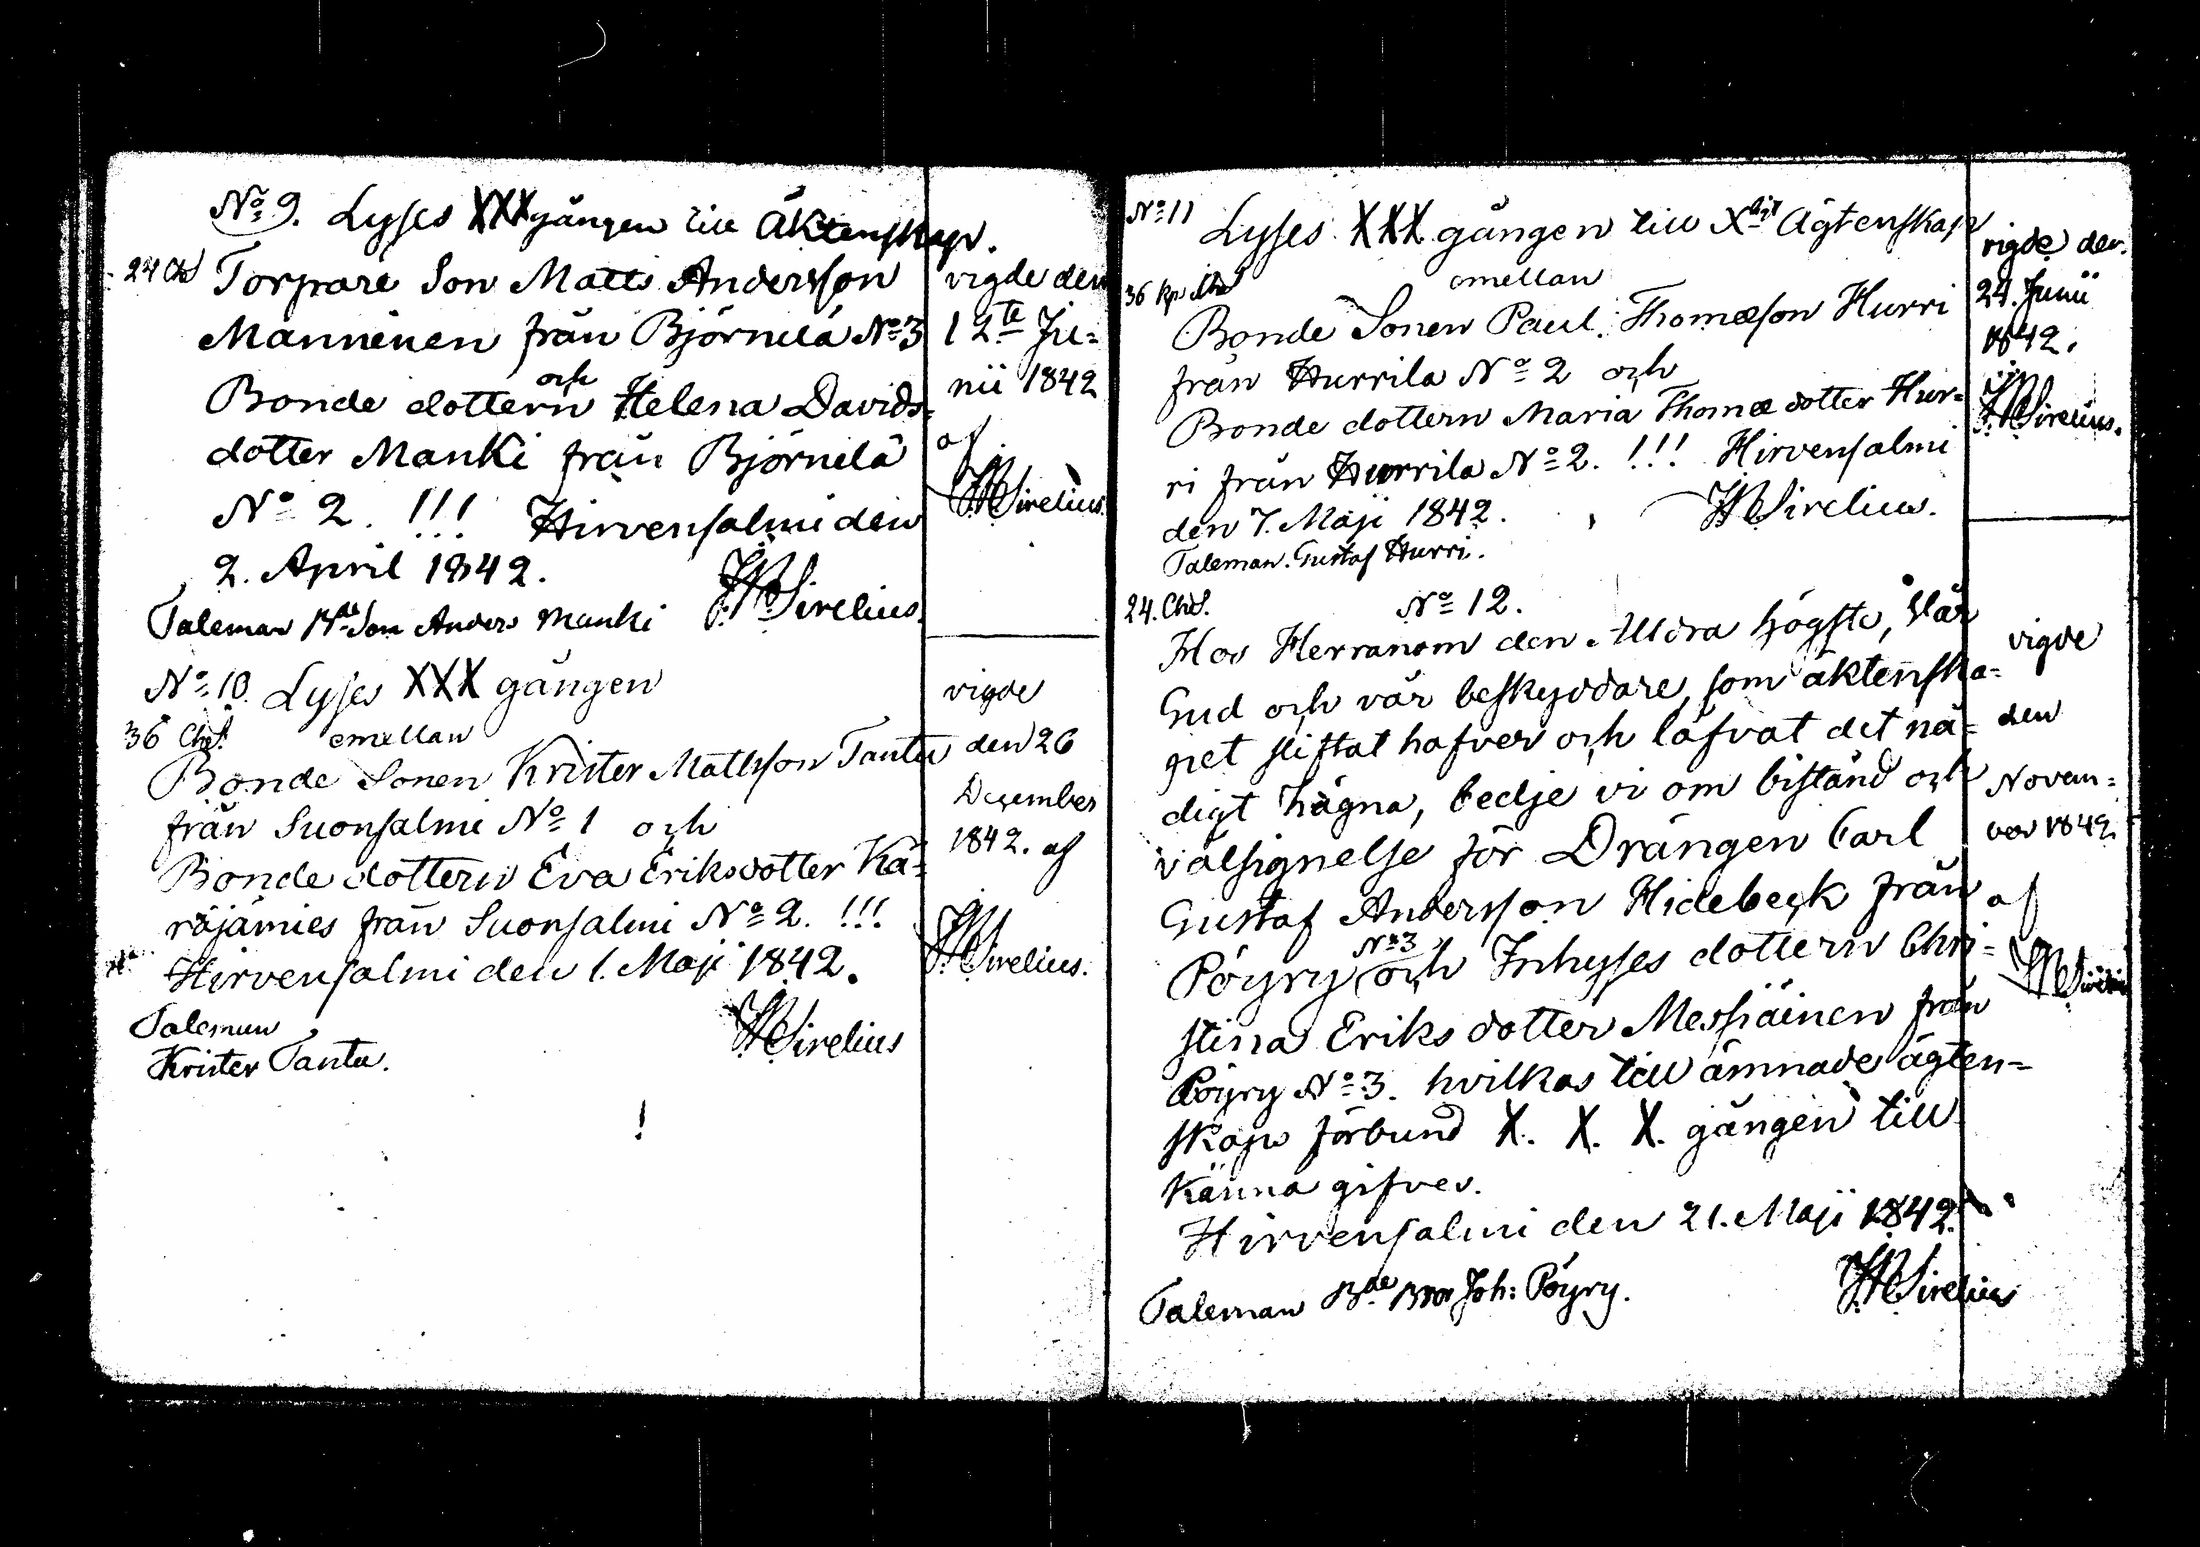 No 9. Lyses XXX gången till Äktenskap.
24 Ch
Torpare Son Matts Andersson
Manninen från Björnilä No 3
och
Bonde dottern Helena Davids=
dotter Manki från Björnilä
No 2. !!! Hirvensalmi den
2. April 1842.
JWSirelius.
Taleman Bde Son Anders Manki
vigde den
12te Ju=
nii 1842
af
JWSirelius.
No 10. Lyses XXX gången
36 Ch.
emellan
Bonde Sonen Krister Mattsson Tantu
från Suonsalmi No 1 och
Bonde dottern Eva Eriksdotter Kä=
räjämies från Suonsalmi No 2. !!!
Hirvensalmi den 1. Maji 1842.
Taleman
Krister Tantu.
JWSirelius
!
vigde
den 26
December
1842. af
JWSirelius.
No 11
Lyses XXX gången till Xligt Ägtenskap
36 kp
emellan
Bonde Sonen Paul Thomæson Hurri
från Hurrila No 2 och
Bonde dottern Maria Thomæ dotter Hur=
ri från Hurrila No 2. !!! Hirvensalmi
den 7. Maji 1842.
JWSirelius.
Taleman. Gustaf Hurri.
vigde den
24. Junii
1842.
JWSirelius.
24. Ch.
No 12.
Hos Herranom den Alldra högste, Vår
Gud och vår beskyddare, som äktenska=
pet stiftat hafver och låfvat det nå=
digt hägna, bedje vi om bistånd och
välsignelse för Drängen Carl
Gustaf Andersson Hidebeck från
No 3
Pöyry och Inhyses dottern Chri=
stina Eriks dotter Messiäinen från
Pöyry No 3. hvilkas till ämnade ägten=
skaps förbund X. X. X. gången till
känna gifves.
Hirvensalmi den 21. Maji 1842.
JWSirelius
Taleman Bde Bror Joh: Pöyry.
vigde
den
Novem=
ber 1842
af
JWSirelius